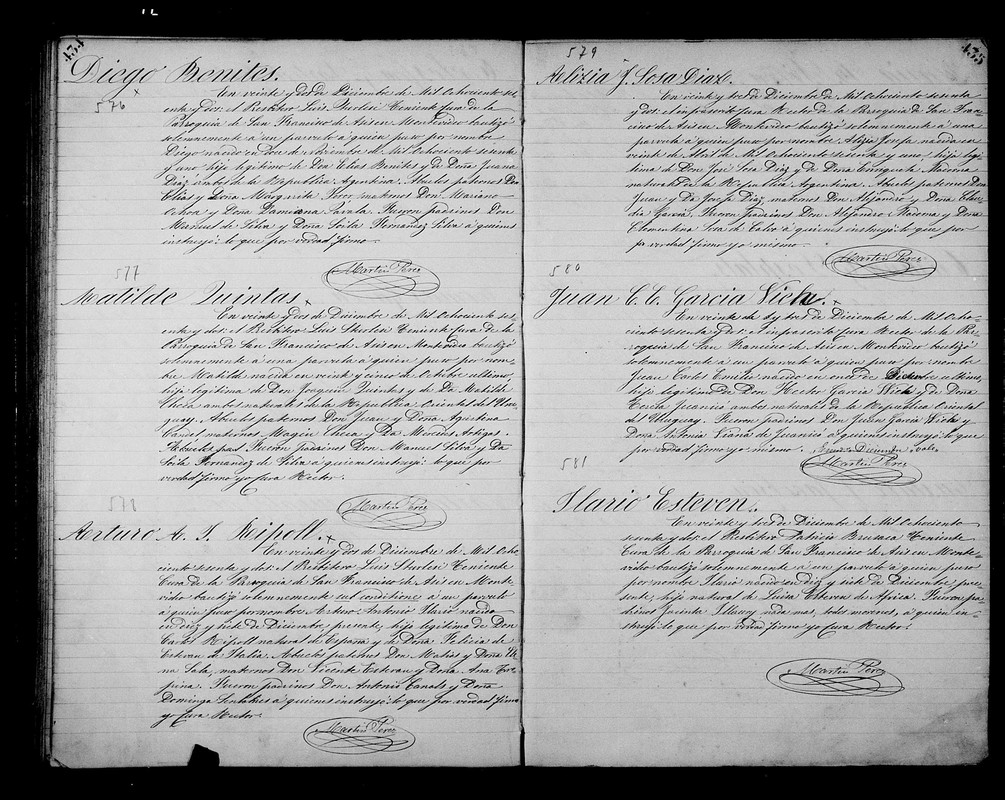 434
Diego Benites.
576
En veinte y dos de Diciembre de Mil Ochociento ses-
enta y dos: el Presbítero Luis Teniente Cura de la
Parroquia de San Francisco de Asis en Montevideo bautizó
solemnemente á un parvulo á quien puso por nombre
Diego nacido en doce de Noviembre de Mil Ochociento sesenta
y uno, hijo legitimo de Don Elias Benites y de Doña Juana
Diaz ambos de la Republica Argentina. Abuelos paternos Don
Elias y Doña Margarita Perez, maternos Don Mariano
Ochoa y Doña Damiana Zavala. Fueron padrinos Don
Manuel de Silva y Doña Soila Fernandez Silva á quienes
instruyó: lo que por verdad firmo.
Martin Perez
577
Matilde Quintas
En veinte y dos de Diciembre de Mil Ochociento ses-
enta y dos: el Presbítero Luis Teniente Cura de la
Parroquia de San Francisco de Asis en Montevideo bautizó
solemnemente á una parvula á quien puso por nom-
bre Matilde nacida en veinte y cinco de Octubre ultimo,
hija legitima de Don Joaquin Quintas y de Da Matilde
ambos naturales de la Republica Oriental del Uru-
guay. Abuelos paternos Don Juan y Doña Agustina
maternos Magin y Da Mercedes Artigas.
Fueron padrinos Don Manuel Silva y Da
Soila Fernandez de Silva á quienes instruyó: lo que por
verdad firmo yo Cura Rector.
Martin Perez
578
Arturo A. I. Ripoll.
En veinte y dos de Diciembre de Mil Ocho-
ciento sesenta y dos: el Presbítero Luis Teniente
Cura de la Parroquia de San Francisco de Asis en Monte
video bautizó solemnemente sub conditione á un parvulo
á quien puso por nombre Arturo Antonio Ilario nacido
en diez y siete de Diciembre presente, hijo legitimo de Don
Carlos Ripoll natural de España y de Doña Felicia de
Estevan de Italia. Abuelos paternos Don Matias y Doña
Sala, maternos Don Vicente Estevan y Doña Ana
Fueron padrinos Don Antonio Canals y Doña
Dominga á quienes instruyó: lo que por verdad firmo
yo Cura Rector.
Martin Perez
435
579
Alizia J. Sosa Diaz.
En veinte y tres de Diciembre de Mil Ochociento sesenta
y dos: el infrascrito Cura Rector de la Parroquia de San Fran-
cisco de Asis en Montevideo bautizó solemnemente á una
parvula á quien puso por nombre Alizia Josefa nacida en
veinte de Abril de Mil Ochociento sesenta y uno, hija legi-
tima de Don José Sosa Diaz y de Doña
naturales de la Republica Argentina. Abuelos paternos Don
Juan y Da Josefa Diaz, maternos Don Alejandro y Doña
Garcia. Fueron padrinos Don Alejandro y Doña
Clementina Sosa de Calvo á quienes instruyó: lo que por
verdad firmo yo mismo.
Martin Perez
580
Juan C. E. Garcia Viela.
En veinte y tres de Diciembre de Mil Ocho-
ciento sesenta y dos: el infrascrito Cura Rector de la Par-
roquia de San Francisco de Asis en Montevideo bautizó
solemnemente á un parvulo á quien puso por nombre
Juan Carlos Emilio nacido en once de Diciembre ultimo,
hijo legitimo de Don Hector Garcia Viela y de Doña
Juanicó ambos naturales de la Republica Oriental
del Uruguay. Fueron padrinos Don Juan Garcia Viela y
Doña Antonia Viana de Juanicó á quienes instruyó: lo que
por verdad firmo yo mismo. Diciembre Vale.
Martin Perez
581
Ilario Esteven.
En veinte y tres de Diciembre de Mil Ochociento
sesenta y dos: el Presbítero Patricio Teniente
Cura de la Parroquia de San Francisco de Asis en Monte-
video bautizó solemnemente á un parvulo á quien puso
por nombre Ilario nacido en diez y siete de Diciembre pre-
sente, hijo natural de Luisa Esteven de Africa. Fueron pa-
drinos nada mas, todos morenos, á quien ins-
truyó: lo que por verdad firmo yo Cura Rector.
Martin Perez